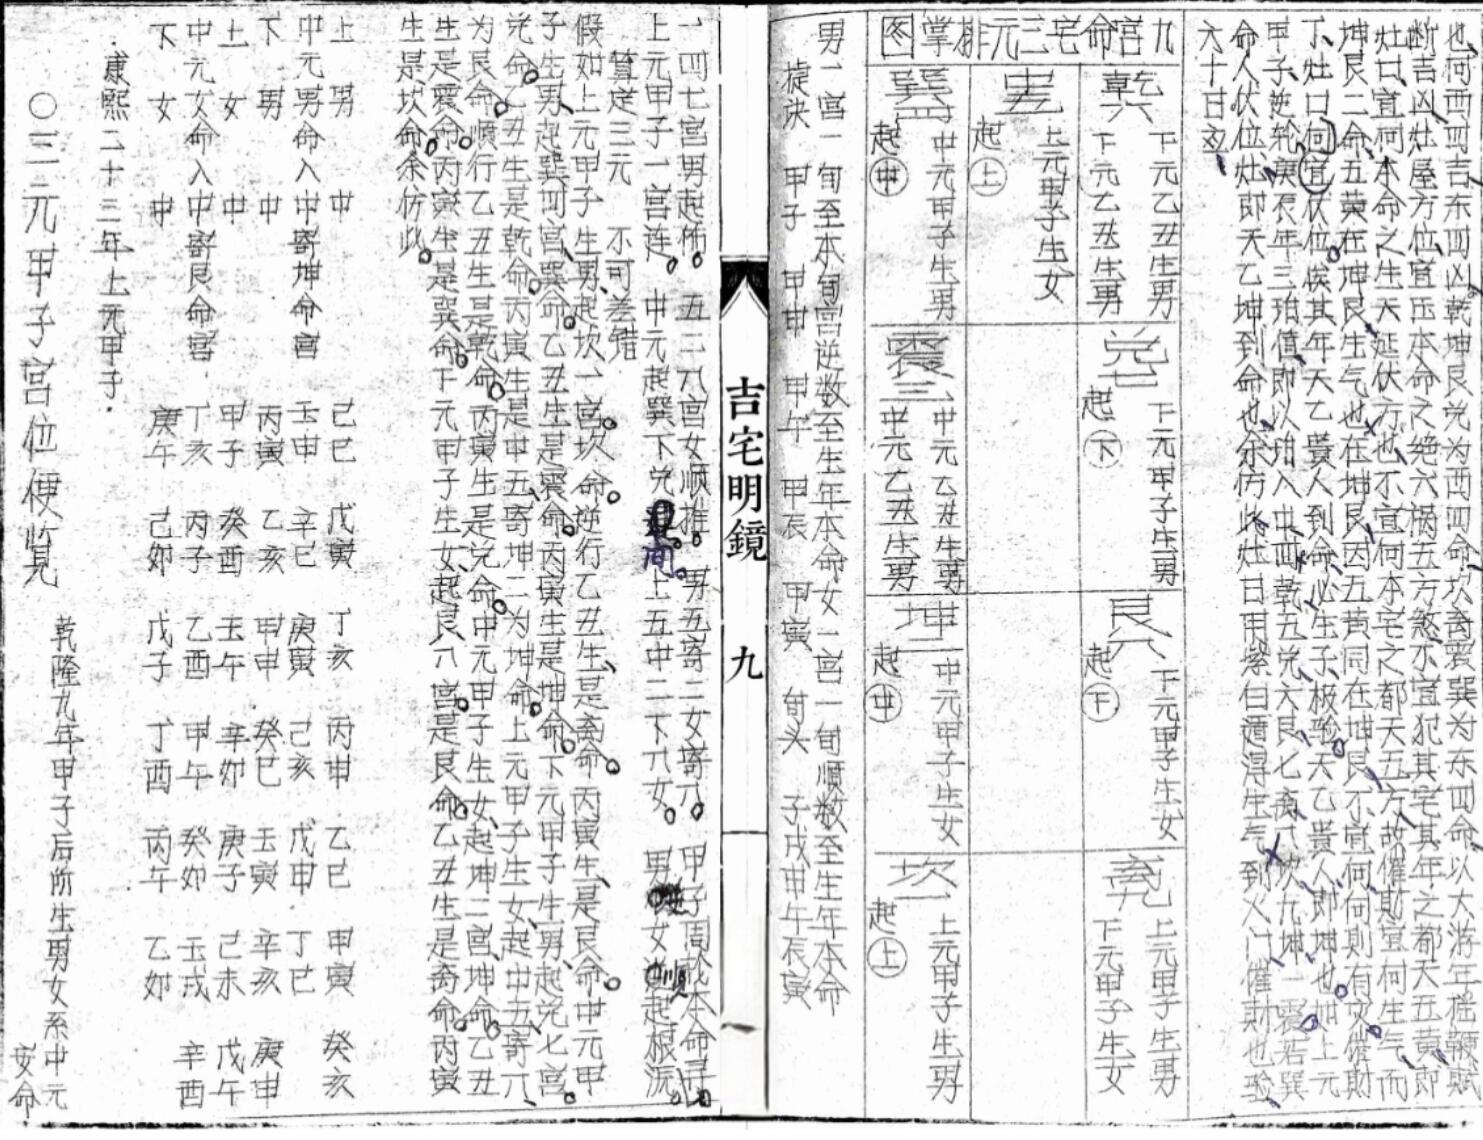 也何西四吉东四凶乾坤艮兑为西四命坎离震巽为东四命以大游年摇鞭赋
断吉凶灶屋方位宜压本命之绝六祸五方煞不宜犯其宅其年之都天五黄即
灶口宜向本命之生天延伏方也不宜向本宅之都天五方故催财宜向生气而
坤艮二命五黄在坤艮生气也在坤艮因五黄同在坤艮不宜向向则有灾催财
丁灶口向宜伏位候其年天乙贵人到命必生子极验天乙贵人即坤也如上元
甲子逆轮庚辰年三碧值即以碧入中四乾五兑六艮七离八坎九坤一震若巽
命人伏位灶即天乙坤到命也余仿此灶日用紫白遁得生气到火门催财也验
六十日应
九宫命宅三元排掌图
乾六
下元乙丑生男
下元乙丑生男
兑七
下元甲子生男
起下
艮八
下元甲子生女
起下
离九
上元甲子生男
下元甲子生女
中宫
上元甲子生女
起上
巽四
中元甲子生男
起中
震三
中元乙丑生男
中元乙丑生男
坤二
中元甲子生女
起中
坎一
上元甲子生男
起上
男一宫一旬至本旬宫逆数至生年本命女一宫一旬顺数至生年本命
旋诀 甲子 甲申 甲午 甲辰 甲寅 旬头 子戌申午辰寅
吉宅明鏡
九
一四七宫男起布 五二八宫女顺推 男五寄二女寄八 甲子周轮本命寻
上元甲子一宫连 中元起巽下兑间 上五中二下八女 男逆女顺起根源
算定三元 不可差错
假如上元甲子生男起坎一宫坎命逆行乙丑生是离命丙寅生是艮命中元甲
子生男起巽四宫巽命乙丑生是震命丙寅生是坤命下元甲子生男起兑七宫
兑命乙丑生是乾命丙寅生是中五寄坤二为坤命上元甲子生女起中五寄八
为艮命顺行乙丑生是乾命丙寅生是兑命中元甲子生女起坤二宫坤命乙丑
生是震命丙寅生是巽命下元甲子生女起艮八宫是艮命乙丑生是离命丙寅
生是坎命余仿此
上男 中 己巳 戊寅 丁亥 丙申 乙巳 甲寅 癸亥
中元男命入中寄坤命宫 壬申 辛巳 庚寅 己亥 戊申 丁巳
下男 中 丙寅 乙亥 甲申 癸巳 壬寅 辛亥 庚申
上女 中 甲子 癸酉 壬午 辛卯 庚子 己未 戊午
中元女命入中寄艮命宫 丁亥 丙子 乙酉 甲午 癸卯 壬戌 辛酉
下女 中 庚午 己卯 戊子 丁酉 丙午 乙卯
康熙二十三年上元甲子
乾隆九年甲子后所生男女系中元
〇三元甲子宫位便览 安命